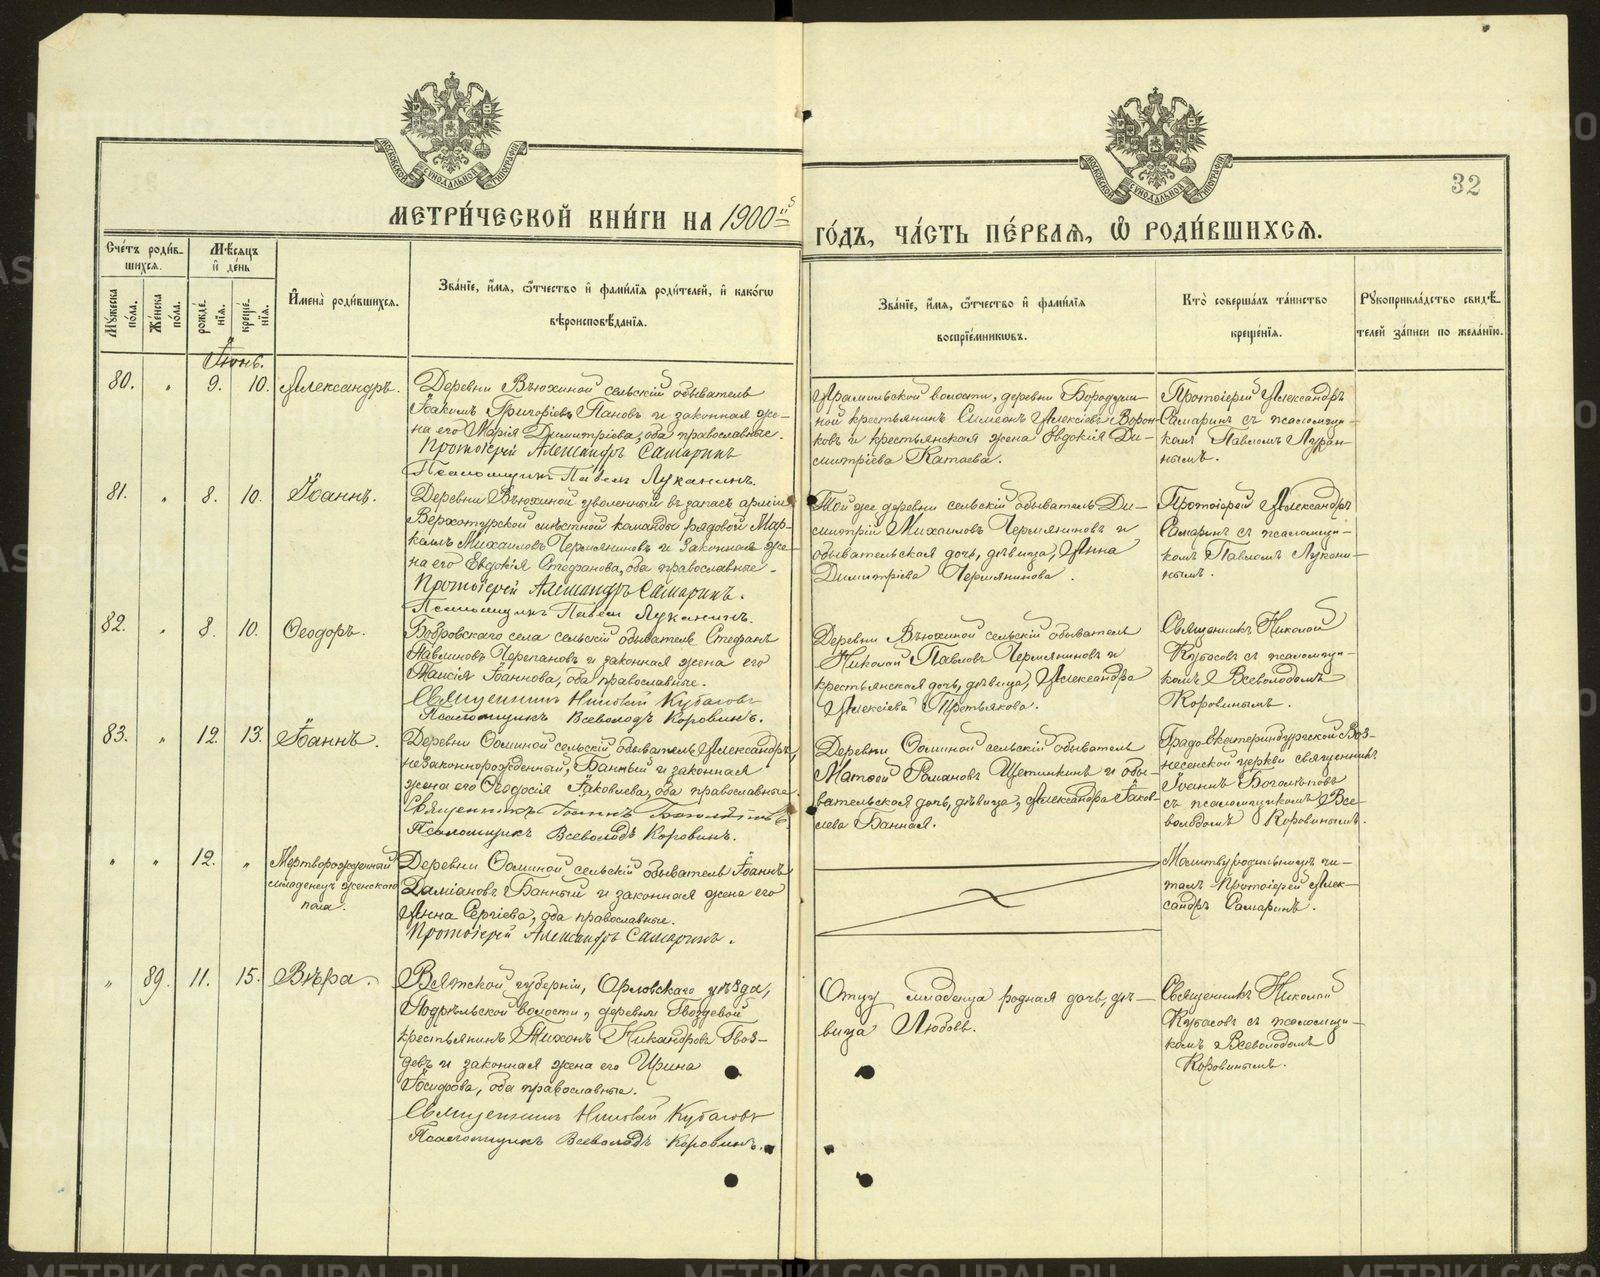 МОСКОВСКОЙ СѴНОДАЛЬНОЙ ТИПОГРАФІИ
МОСКОВСКОЙ СѴНОДАЛЬНОЙ ТИПОГРАФІИ
32
МЕТРИ́ЧЕСКОЙ КНИ́ГИ НА 1900
ГО́ДЪ, ЧА́СТЬ ПЕ́РВАѦ, Ѽ РОДИ́ВШИХСѦ.
Сче́тъ роди́в-
шихсѧ.
Мѣ́сѧцъ
и҆ де́нь
Мꙋ́жеска по́ла.
Же́нска по́ла.
рожде́нїѧ.
креще́нїѧ.
И҆мена̀ роди́вшихсѧ.
Зва́нїе, и҆́мѧ, ѻ҆́тчество и҆ фами́лїѧ роди́телей, и҆ како́гѡ
вѣроисповѣ́данїѧ.
Зва́нїе, и҆́мѧ, ѻ҆́тчество и҆ фами́лїѧ
воспрїе́мникѡвъ.
Кто̀ соверша́лъ та́инство
креще́нїѧ.
Рꙋкоприкла́дство свидѣ́-
телей за́писи по жела́нїю.
Іюнь.
80. " 9. 10. Александръ.
Деревни Вьюхиной сельскій обыватель
Іоакимъ Григоріевъ Пановъ и законная же-
на его Марія Димитріева, оба православные.
Протоіерей Александръ Самаринъ
Псаломщикъ Павелъ Луканинъ.
Арамильской волости, деревни Бородули-
ной крестьянинъ Симеонъ Алексіевъ Ворон-
ковъ и крестьянская жена Евдокія Ди-
митріева Катаева.
Протоіерей Александръ
Самаринъ съ псаломщи-
комъ Павломъ Лукан-
нымъ.
81. " 8. 10. Іоаннъ.
Деревни Вьюхиной уволенный въ запасъ арміи
Верхотурской мѣстной команды рядовой Мар-
келъ Михаиловъ Чермяниновъ и законная же-
на его Евдокія Стефанова, оба православные.
Протоіерей Александръ Самаринъ.
Псаломщикъ Павелъ Луканинъ.
Той же деревни сельскій обыватель Ди-
митрій Михаиловъ Чермяниновъ и
обывательская дочь, дѣвица, Анна
Димитріева Чермянинова.
Протоіерей Александръ
Самаринъ съ псаломщи-
комъ Павломъ Лукани-
нымъ.
82. " 8. 10. Ѳеодоръ.
Бобровскаго села сельскій обыватель Стефанъ
Павлиновъ Черепановъ и законная жена его
Таисія Іоаннова, оба православные.
Священникъ Николай Кубасовъ
Псаломщикъ Всеволодъ Коровинъ.
Деревни Вьюхиной сельскій обыватель
Николай Павловъ Чермяниновъ и
крестьянская дочь, дѣвица, Александра
Алексіева Третьякова.
Священникъ Николай
Кубасовъ съ псаломщи-
комъ Всеволодомъ
Коровинымъ.
83. " 12. 13. Іоаннъ.
Деревни Ѳоминой сельскій обыватель Александръ,
незаконнорожденный, Банный и законная
жена его Ѳеодосія Іаковлева, оба православные
Священникъ Іоаннъ Боголѣповъ
Псаломщикъ Всеволодъ Коровинъ.
Деревни Ѳоминой сельскій обыватель
Матѳей Романовъ Щетинкинъ и обы-
вательская дочь, дѣвица, Александра Іаков-
лева Банная.
Градо-Екатеринбургской Воз-
несенской церкви священникъ
Іоаннъ Боголѣповъ
съ псаломщикомъ Все-
володомъ Коровинымъ.
" " 12. " Мертворожденный
младенецъ женскаго
пола.
Деревни Ѳоминой сельскій обыватель Іоаннъ
Даміановъ Банный и законная жена его
Анна Сергіева, оба православные.
Протоіерей Александръ Самаринъ.
Молитву родильницѣ чи-
талъ Протоіерей Алек-
сандръ Самаринъ.
" 89. 11. 15. Вѣра.
Вятской губерніи, Орловскаго уѣзда,
Подрѣльской волости, деревни Гвоздевой
крестьянинъ Тихонъ Никандровъ Гвоз-
девъ и законная жена его Ирина
Іосифова, оба православные.
Священникъ Николай Кубасовъ
Псаломщикъ Всеволодъ Коровинъ.
Отцу младенца родная дочь, дѣ-
вица Любовь.
Священникъ Николай
Кубасовъ съ псаломщи-
комъ Всеволодомъ
Коровинымъ.
METRIKI.CASO-URAL.RU